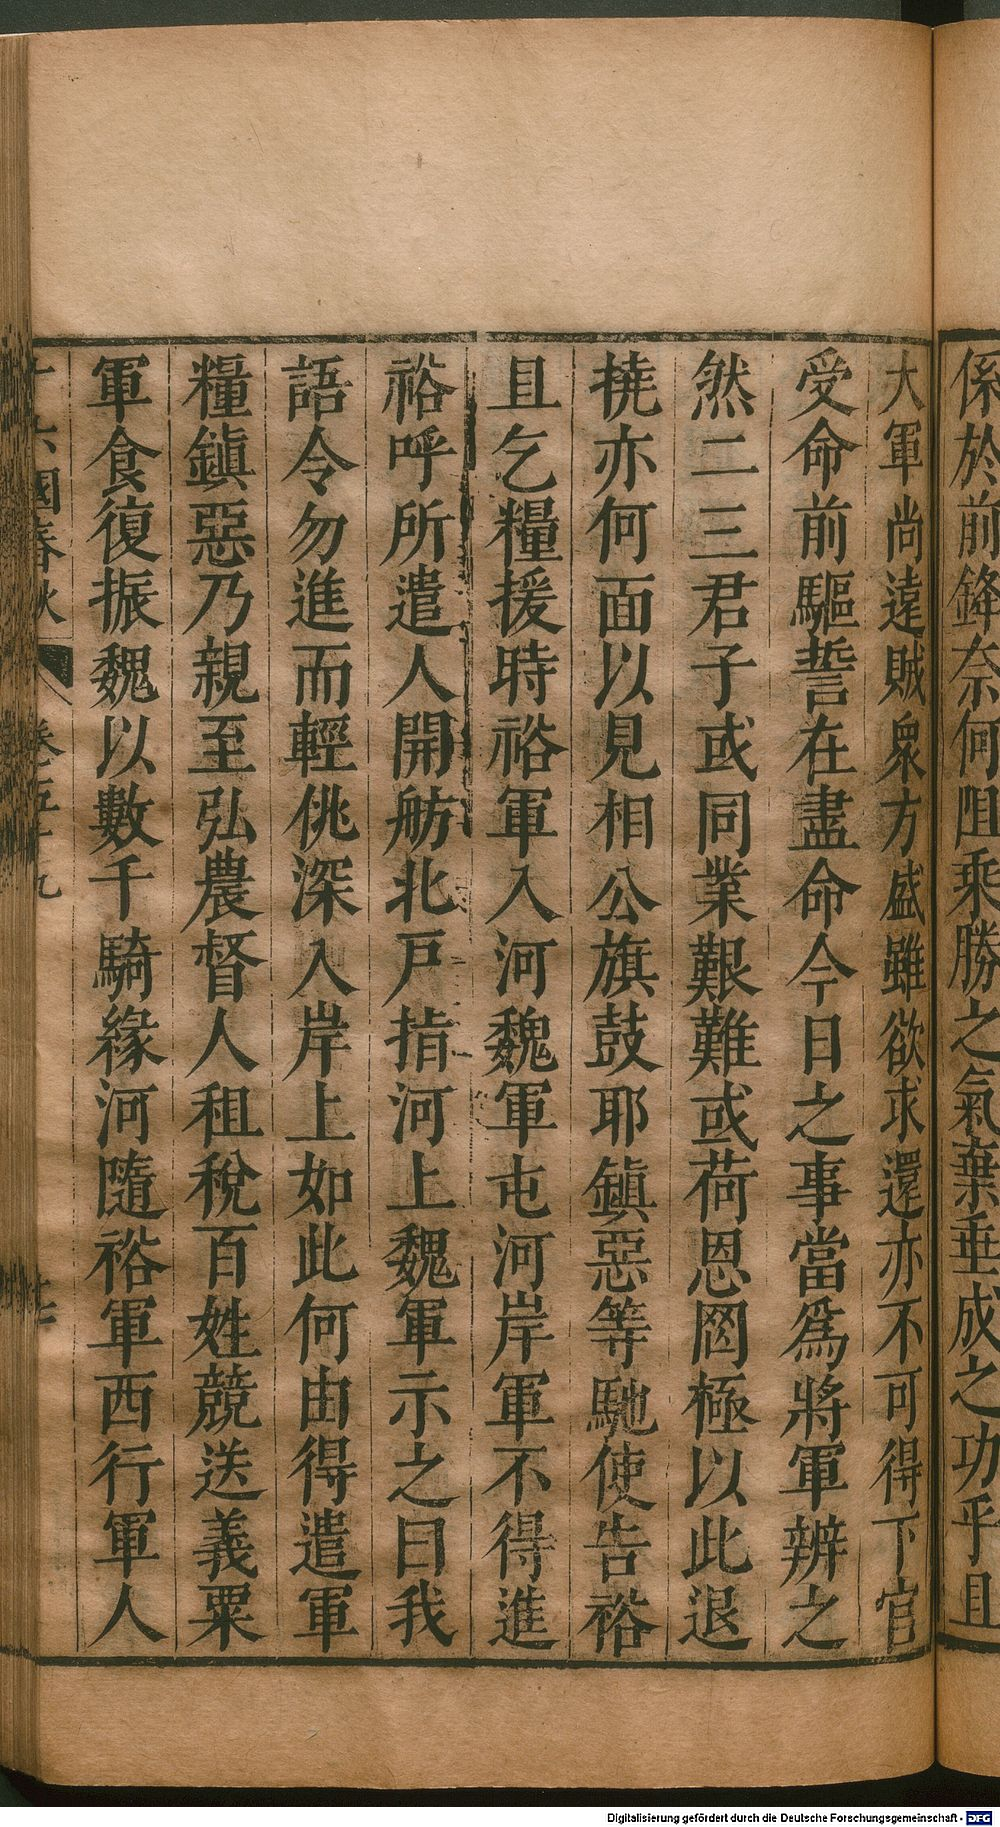 係於前鋒奈何阻乘勝之氣棄垂成之功乎且
大軍尚遠賊衆方盛雖欲求還亦不可得下官
受命前驅誓在盡命今日之事當爲將軍辨之
然二三君子或同業艱難或荷恩罔極以此退
撓亦何面以見相公旗鼓耶鎭惡等馳使告裕
且乞糧援時裕軍入河魏軍屯河岸軍不得進
裕呼所遣人開舫北戸指河上魏軍示之曰我
語令勿進而輕佻深入岸上如此何由得遣軍
糧鎭惡乃親至弘農督人租稅百姓競送義粟
軍食復振魏以數千騎緣河隨裕軍西行軍人
十六國春秋 卷五十九
Digitalisierung gefördert durch die Deutsche Forschungsgemeinschaft - DFG